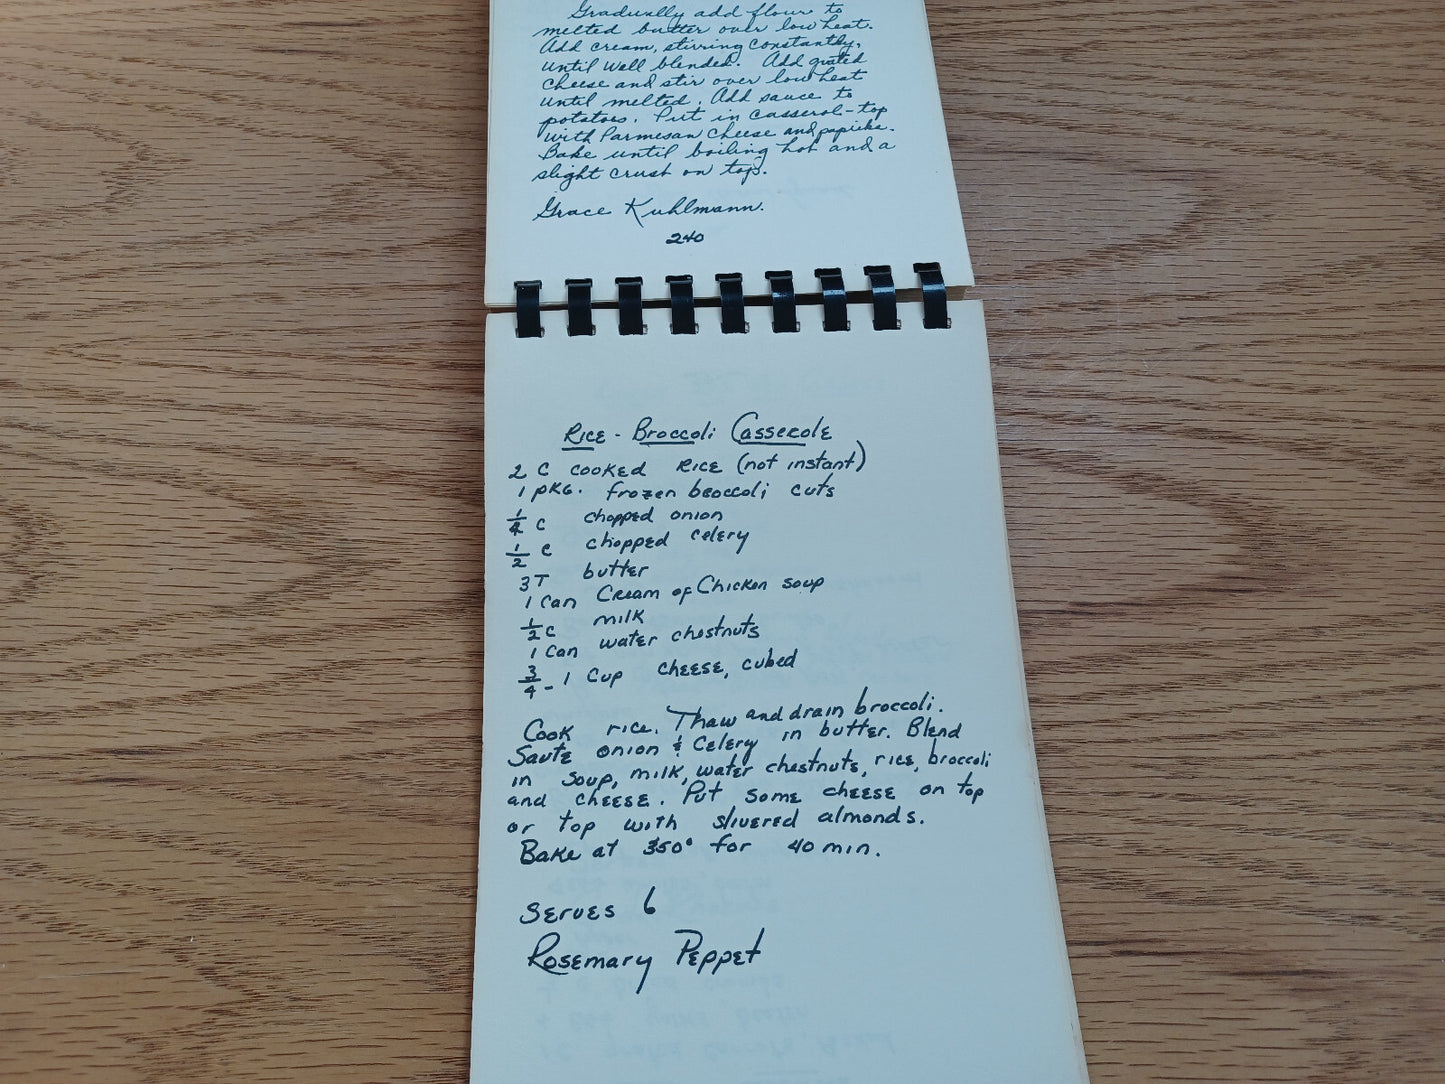 Gradually add flour to
melted butter over low heat.
Add cream, stirring constantly,
until well blended. Add grated
cheese and stir over low heat
until melted. Add sauce to
potatoes. Put in casserol-top
with Parmesan cheese and paprika.
Bake until boiling hot and a
slight crust on top.
Grace Kuhlmann.
240
Rice - Broccoli Casserole
2 C cooked rice (not instant)
1 pkg. frozen broccoli cuts
1/4 C chopped onion
1/2 C chopped celery
3 T butter
1 Can Cream of Chicken soup
1/2 C milk
1 Can water chestnuts
3/4 - 1 Cup cheese, cubed
Cook rice. Thaw and drain broccoli.
Saute onion & Celery in butter. Blend
in soup, milk, water chestnuts, rice, broccoli
and cheese. Put some cheese on top
or top with slivered almonds.
Bake at 350° for 40 min.
Serves 6
Rosemary Peppet